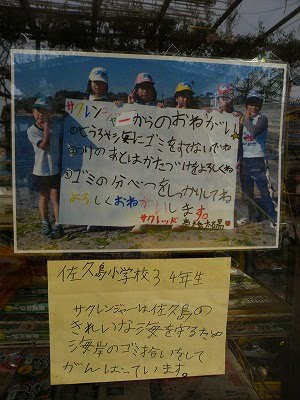 サクレンジャーからのおねがい
①どうろや海にゴミをすてないでね
②つりのあとはかたづけをよろしくね
③ゴミの分べつをしっかりしてね
よろしくおねがいします。
サクレッド
佐久島小学校3.4年生
サクレンジャーは佐久島の
きれいな海を守るため
海岸のゴミ拾いをして
がんばっています。